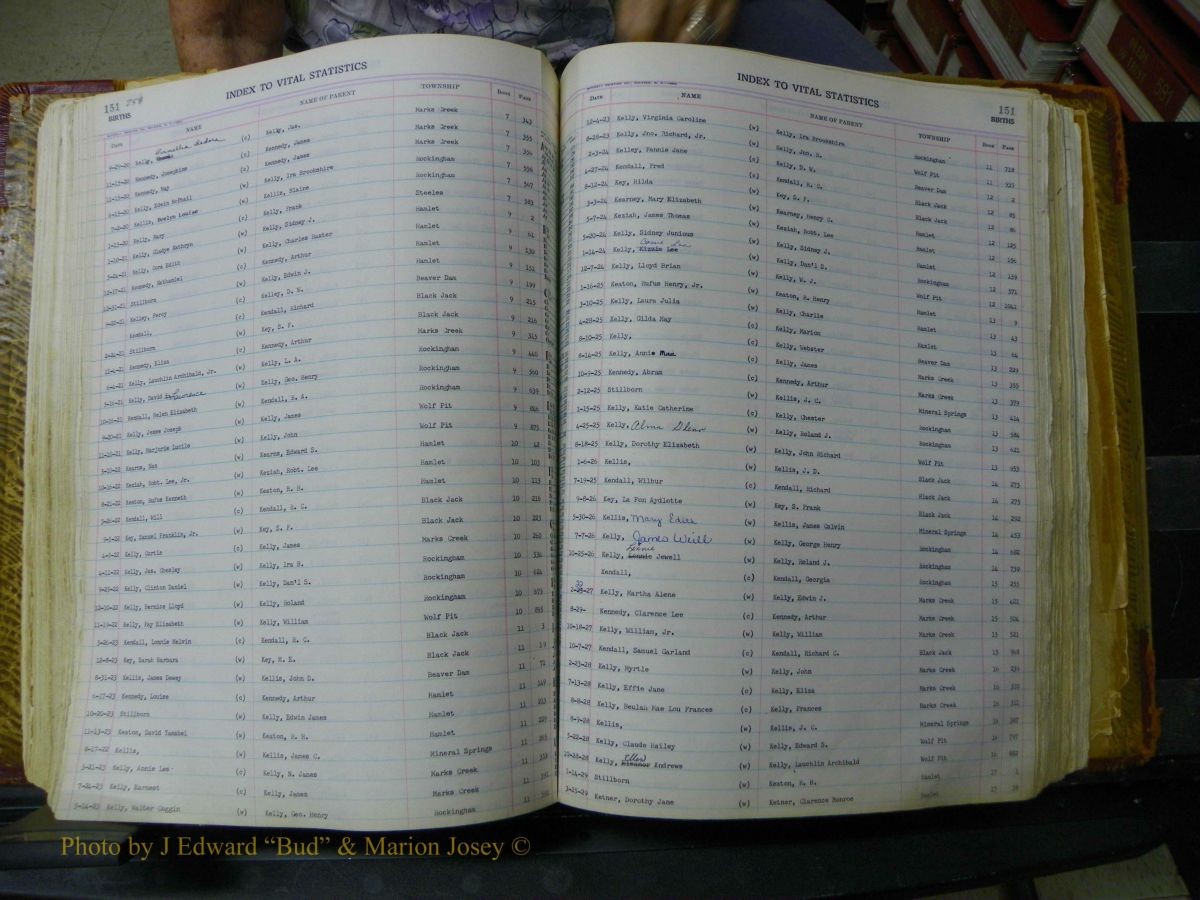 INDEX TO VITAL STATISTICS
151
BIRTHS
Date NAME NAME OF PARENT TOWNSHIP Book Page
Kelly, (c) Kelly, Jas. Marks Creek 7 343
11-19-20 Kennedy, Josephine (c) Kennedy, James Marks Creek 7 355
Kennedy, May (c) Kennedy, James Marks Creek 7
Kelly, Edwin McPhail (w) Kelly, Ira Brookshire Rockingham 7
Kellis, Evelyn Louise (w) Kellis, Blaine Rockingham 7
Kelly, Mary (c) Kelly, Frank Steeles 7 583
Kelly, Gladys Kathryn (w) Kelly, Sidney J. Hamlet 9 2
Kelly, Dora Edith (w) Kelly, Charles Baxter Hamlet 9 61
Kennedy, Nathaniel (c) Kennedy, Arthur Hamlet 9 130
Stillborn (w) Kelly, Edwin J. Hamlet 9 151
Kelley, Percy (c) Kelley, D. W. Beaver Dam 9 199
Kendall, (c) Kendall, Richard Black Jack 9 215
Stillborn (w) Key, S. F. Black Jack 9 216
Kennedy, Eliza (c) Kennedy, Arthur Marks Creek 9 315
Kelly, Lauchlin Archibald, Jr. (w) Kelly, L. A. Rockingham 9 440
Kelly, David Lawrence (w) Kelly, Geo. Henry Rockingham 9 560
Kendall, Helen Elizabeth (w) Kendall, H. A. Rockingham 9 639
Kelly, Jesse Joseph (w) Kelly, James Wolf Pit 9
Kelly, Marjorie Lucile (w) Kelly, John Wolf Pit 9 875
Kearns, Nan (w) Kearns, Edward S. Hamlet 10 42
Keziah, Robt. Lee, Jr. (w) Keziah, Robt. Lee Hamlet 10 103
Keaton, Rufus Kenneth (w) Keaton, R. H. Hamlet 10 113
Kendall, Will (c) Kendall, R. C. Black Jack 10 216
Key, Samuel Franklin, Jr. (w) Key, S. F. Black Jack 10 223
Kelly, Curtis (c) Kelly, James Marks Creek 10 260
4-11-22 Kelly, Jas. Chesley (w) Kelly, Ira B. Rockingham 10 534
9-23-22 Kelly, Clinton Daniel (w) Kelly, Dan'l S. Rockingham 10 624
12-10-22 Kelly, Bernice Lloyd (w) Kelly, Roland Rockingham 10 673
11-19-22 Kelly, Foy Elizabeth (w) Kelly, William Wolf Pit 10 895
3-26-23 Kendall, Lonnie Melvin (c) Kendall, R. C. Black Jack 11 3
12-8-23 Key, Sarah Barbara (w) Key, M. E. Black Jack 11 19
8-31-23 Kellis, James Dewey (w) Kellis, John D. Beaver Dam 11 72
6-17-23 Kennedy, Louise (c) Kennedy, Arthur Hamlet 11 149
10-20-23 Stillborn (w) Kelly, Edwin James Hamlet 11 213
11-13-23 Keaton, David Tamabel (w) Keaton, R. H. Hamlet 11
8-17-22 Kellis, (w) Kellis, James C. Mineral Springs 11
5-21-23 Kelly, Annie Lee (c) Kelly, N. James Marks Creek 11
7-24-23 Kelly, Earnest (c) Kelly, James Marks Creek 11
5-14-23 Kelly, Walter Coggin (w) Kelly, Geo. Henry Rockingham 11
INDEX TO VITAL STATISTICS
151
BIRTHS
Date NAME NAME OF PARENT TOWNSHIP Book Page
12-4-23 Kelly, Virginia Caroline (w) Kelly, Ira Brookshire Rockingham 11 718
8-28-23 Kelly, Jno. Richard, Jr. (w) Kelly, Jno. R. Wolf Pit 11 925
2-3-24 Kelley, Fannie Jane (c) Kelly, D. W. Beaver Dam 12 2
4-27-24 Kendall, Fred (c) Kendall, R. C. Black Jack 12 85
8-12-24 Key, Hilda (w) Key, S. F. Black Jack 12 86
3-3-24 Kearney, Mary Elizabeth (w) Kearney, Henry C. Hamlet 12 125
5-7-24 Keziah, James Thomas (w) Keziah, Robt. Lee Hamlet 12 156
5-20-24 Kelly, Sidney Junious (w) Kelly, Sidney J. Hamlet 12 159
1-14-24 Kelly, Kizzie Lee (w) Kelly, Dan'l S. Rockingham 12 571
12-7-24 Kelly, Lloyd Brian (w) Kelly, W. J. Wolf Pit 12 1041
1-16-25 Keaton, Rufus Henry, Jr. (w) Keaton, R. Henry Hamlet 13 9
3-10-25 Kelly, Laura Julia (w) Kelly, Charlie Hamlet 13 43
4-28-25 Kelly, Gilda May (w) Kelly, Marion Hamlet 13 64
8-10-25 Kelly, (c) Kelly, Webster Beaver Dam 13 229
6-14-25 Kelly, Annie Mae (c) Kelly, James Marks Creek 13 355
10-9-25 Kennedy, Abram (c) Kennedy, Arthur Marks Creek 13 379
2-12-25 Stillborn (w) Kellis, J. C. Mineral Springs 13 414
1-15-25 Kelly, Katie Catherine (c) Kelly, Chester Rockingham 13 584
4-25-25 Kelly, Alma (w) Kelly, Roland J. Rockingham 13 621
8-18-25 Kelly, Dorothy Elizabeth (w) Kelly, John Richard Wolf Pit 13 953
1-6-26 Kellis, (w) Kellis, J. D. Black Jack 14 273
7-19-25 Kendall, Wilbur (c) Kendall, Richard Black Jack 14 275
9-8-26 Key, La Fon Aydlette (w) Key, S. Frank Black Jack 14 292
5-30-26 Kellis, Mary (w) Kellis, James Calvin Mineral Springs 14 453
7-7-26 Kelly, James (w) Kelly, George Henry Rockingham 14 682
10-25-26 Kelly, Jewell (w) Kelly, Roland J. Rockingham 14 739
Kendall, (c) Kendall, Georgia Rockingham 15 255
Kelly, Martha Alene (w) Kelly, Edwin J. Marks Creek 15 421
8-29- Kennedy, Clarence Lee (c) Kennedy, Arthur Marks Creek 15 504
10-18-27 Kelly, Willian, Jr. (w) Kelly, Willian Marks Creek 15 521
10-7-27 Kendall, Samuel Garland (c) Kendall, Richard C. Black Jack 15
2-23-28 Kelly, Myrtle (w) Kelly, John Marks Creek 16
7-13-28 Kelly, Effie Jane (c) Kelly, Eliza Marks Creek 16
8-8-28 Kelly, Beulah Mae Lou Frances (c) Kelly, Frances Marks Creek 16
8-9-28 Kellis, (w) Kellis, J. C. Mineral Springs 16
5-22-28 Kelly, Claude Hailey (w) Kelly, Edward S. Wolf Pit 16
10-28-28 Kelly, Ellen Andrews (w) Kelly, Lauchlin Archibald Wolf Pit 16
1-14-29 Stillborn (w) Keaton, R. H. Hamlet 17 1
3-25-29 Ketner, Dorothy Jane (w) Ketner, Clarence Monroe Hamlet 17
Photo by J Edward "Bud" & Marion Josey ©